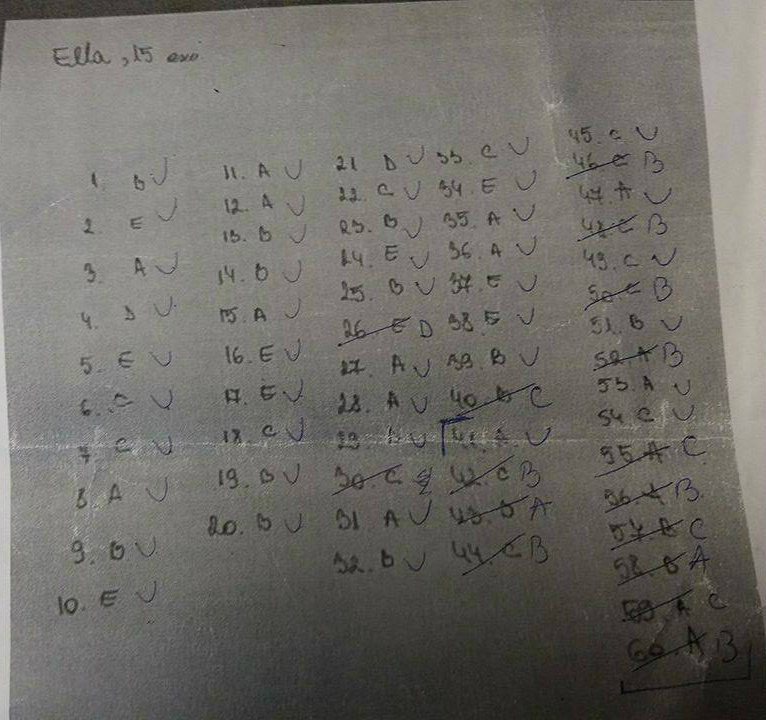 Ella, 15
1. B ✓
2. E ✓
3. A ✓
4. D ✓
5. E ✓
6. C ✓
7 C ✓
8 A ✓
9. B ✓
10. E ✓
11. A ✓
12. A ✓
13. B ✓
14. B ✓
15. A ✓
16. E ✓
17. E ✓
18. C ✓
19. B ✓
20. B ✓
21 D ✓
22. C ✓
23. B ✓
24. E ✓
25. B ✓
26 E D
27. A ✓
28. A ✓
29. ✓
30. C
31 A ✓
32. B ✓
33. C ✓
34. E ✓
35. A ✓
36. A ✓
37. E ✓
38. E ✓
39. B ✓
40. B C
41. A ✓
42. C B
43. B A
44. C B
45. C ✓
46 C B
47. A ✓
48. C B
49. C ✓
50 C B
51. B ✓
52. A B
53. A ✓
54 C ✓
55 A C
56. A B
57 B C
58. B A
59. A C
60. A B